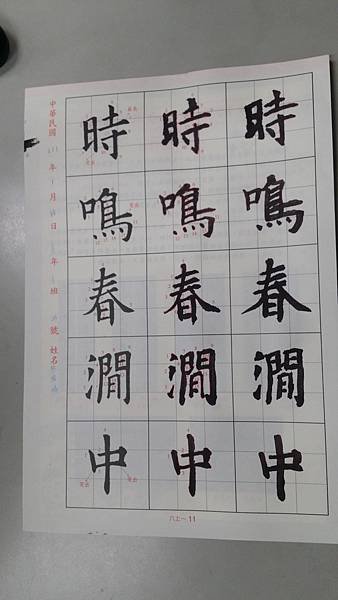 時鳴春澗中
時鳴春澗中
時鳴春澗中
中華民國 年 月 日 年 班 號 姓名
八上~11